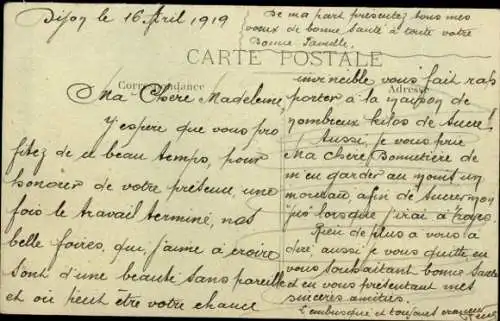 Dijon le 16 Avril 1919
De ma part présentez tous mes
vœux de bonne santé à toute votre
Bonne Famille.
CARTE POSTALE
Correspondance
Adresse
Ma Chère Madeleine
J'espère que vous pro
fitez de ce beau temps, pour
honorer de votre présence, une
fois le travail terminé, nos
belle foires, que j'aime à croire
sont d'une beauté sans pareille
et où peut être votre chance
invincible vous fait rap
porter à la maison de
nombreux kilos de sucre!
Aussi, je vous prie
Ma chère Bonnetière de
m'en garder au moins un
morceau afin de sucrer mon
lorsque j'irai à Troyes.
Rien de plus à vous
dire aussi je vous quitte en
vous souhaitant bonne santé
et en vous présentant mes
sincères amitiés.
L'embusqué et toujours